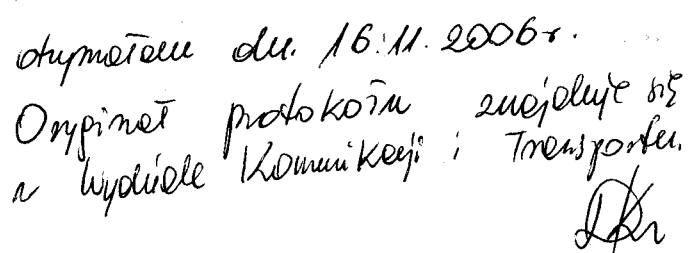 otrzymałam dn. 16.11.2006 r.
Oryginał protokołu znajduje się
w Wydziale Komunikacji i Transportu.